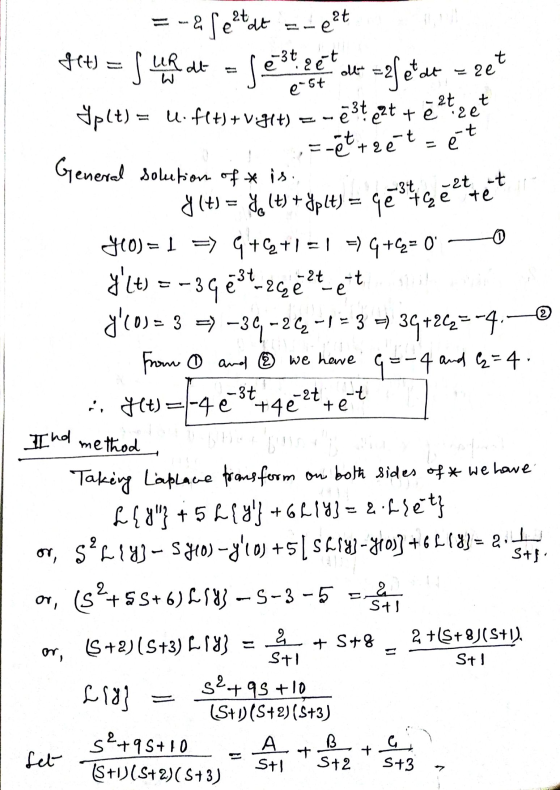 = -2 ∫ e^{2t} dt = - e^{2t}
g(t) = ∫ uR/W dt = ∫ e^{-3t}·2e^{-t} / e^{-5t} dt = 2∫ e^{t} dt = 2e^{t}
y_p(t) = u·f(t) + v·g(t) = - e^{-3t}·e^{2t} + e^{-2t}·2e^{t}
= -e^{-t} + 2e^{-t} = e^{-t}
General solution of * is.
y(t) = y_c(t) + y_p(t) = C₁e^{-3t} + C₂e^{-2t} + e^{-t}
y(0) = 1 ⇒ C₁ + C₂ + 1 = 1 ⇒ C₁ + C₂ = 0 — ①
y'(t) = -3C₁e^{-3t} - 2C₂e^{-2t} - e^{-t}
y'(0) = 3 ⇒ -3C₁ - 2C₂ - 1 = 3 ⇒ 3C₁ + 2C₂ = -4. — ②
From ① and ② we have C₁ = -4 and C₂ = 4.
∴ y(t) = -4e^{-3t} + 4e^{-2t} + e^{-t}
IInd method
Taking Laplace transform on both sides of * we have
L{y''} + 5L{y'} + 6L{y} = 2·L{e^{-t}}
or, S²L{y} - Sy(0) - y'(0) + 5[SL{y} - y(0)] + 6L{y} = 2·1/(S+1).
or, (S² + 5S + 6) L{y} - S - 3 - 5 = 2/(S+1)
or, (S+2)(S+3) L{y} = 2/(S+1) + S + 8 = (2 + (S+8)(S+1))/(S+1).
L{y} = (S² + 9S + 10)/((S+1)(S+2)(S+3))
Let (S² + 9S + 10)/((S+1)(S+2)(S+3)) = A/(S+1) + B/(S+2) + C/(S+3),